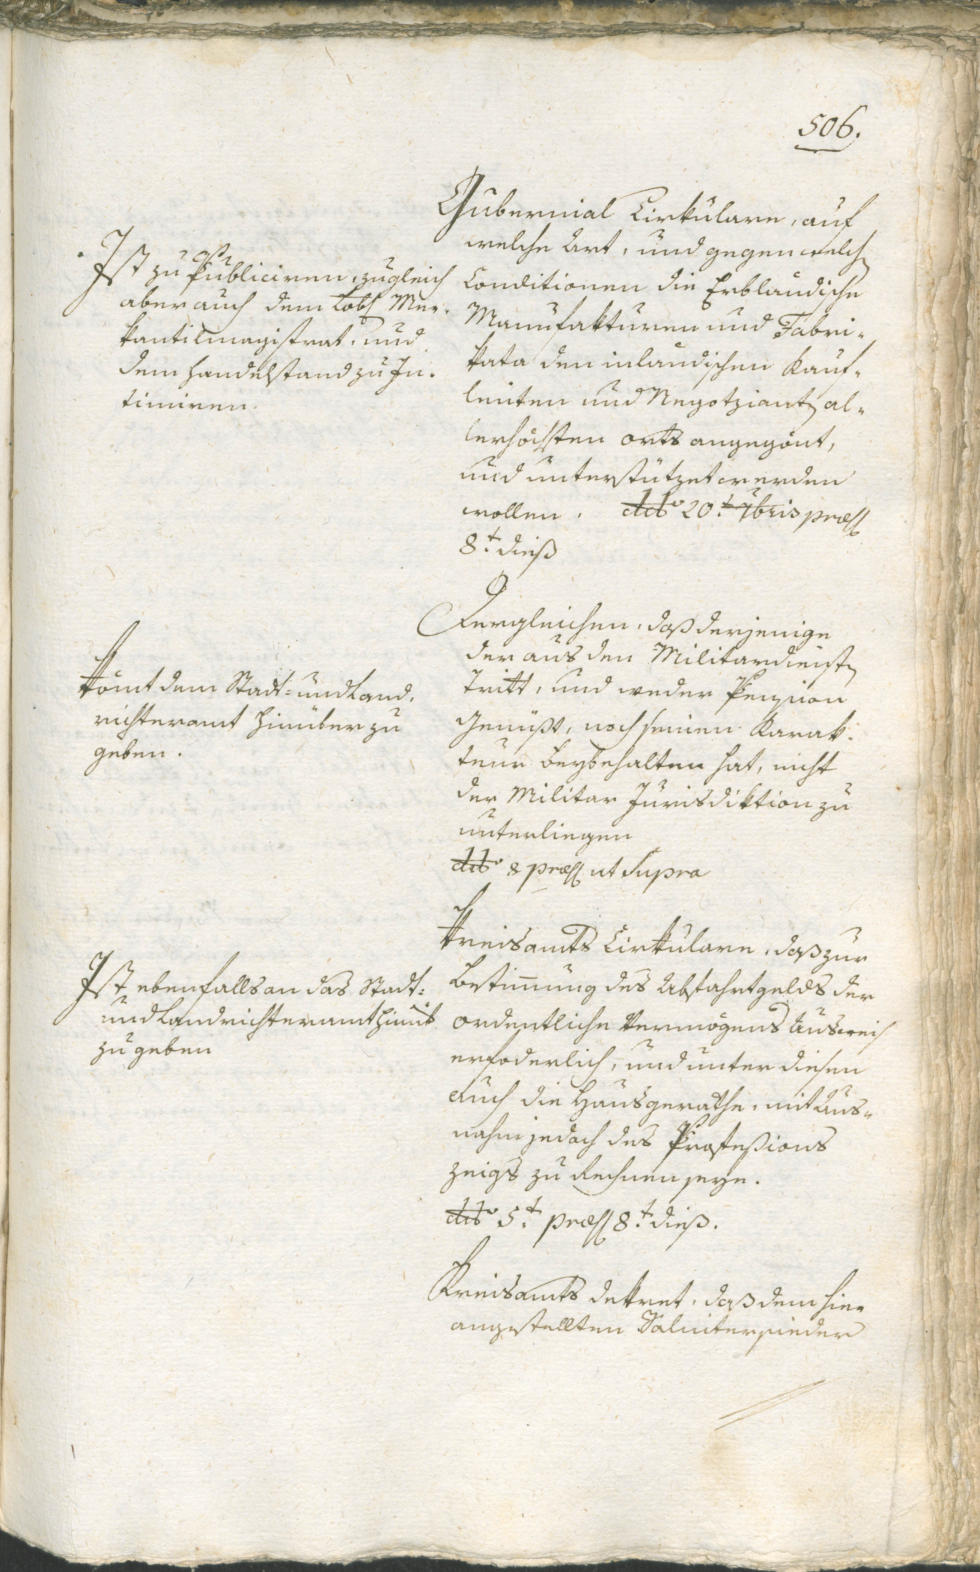 506.
Gubernial Cirkulare, auf
welche Art, und gegen welch
Conditionen die Erbländische
Manufakturen und Fabri-
kata den inländischen Kauf-
leuten und Negotziant al-
lerhöchsten orts angegönt,
und unterstützet werden
wollen. ddo 20.t 7bris præs
8.t dieß
Ist zu Publiciren, zugleich
aber auch dem Löbl Mer-
kantilmagistrat, und
dem Handelstand zu In-
timiren.
Dergleichen, daß derjenige
der aus den Militardienst
tritt, und weder Pension
genüßt, noch seinen Karak-
teur beybehalten hat, nicht
der Militar Jurisdiktion zu
unterliegen
ddo 8 præs ut Supra
Kömt dem Stadt- und Land-
richteramt hinüber zu
geben.
Kreisamts Cirkulare, daß zur
Bestimung des Abfahrtgelds der
ordentliche Vermögens Ausweis
erfoderlich, und unter diesen
auch die Hausgeräthe, mit Aus-
nahm jedoch des Profeßions
zeigs zu Rechnen seye.
ddo 5.t præs 8.t dieß.
Ist ebenfalls an das Stadt-
und Landrichteramt hinüb
zu geben
Kreisamts dekret, daß dem hier
angestellten Salitersieder